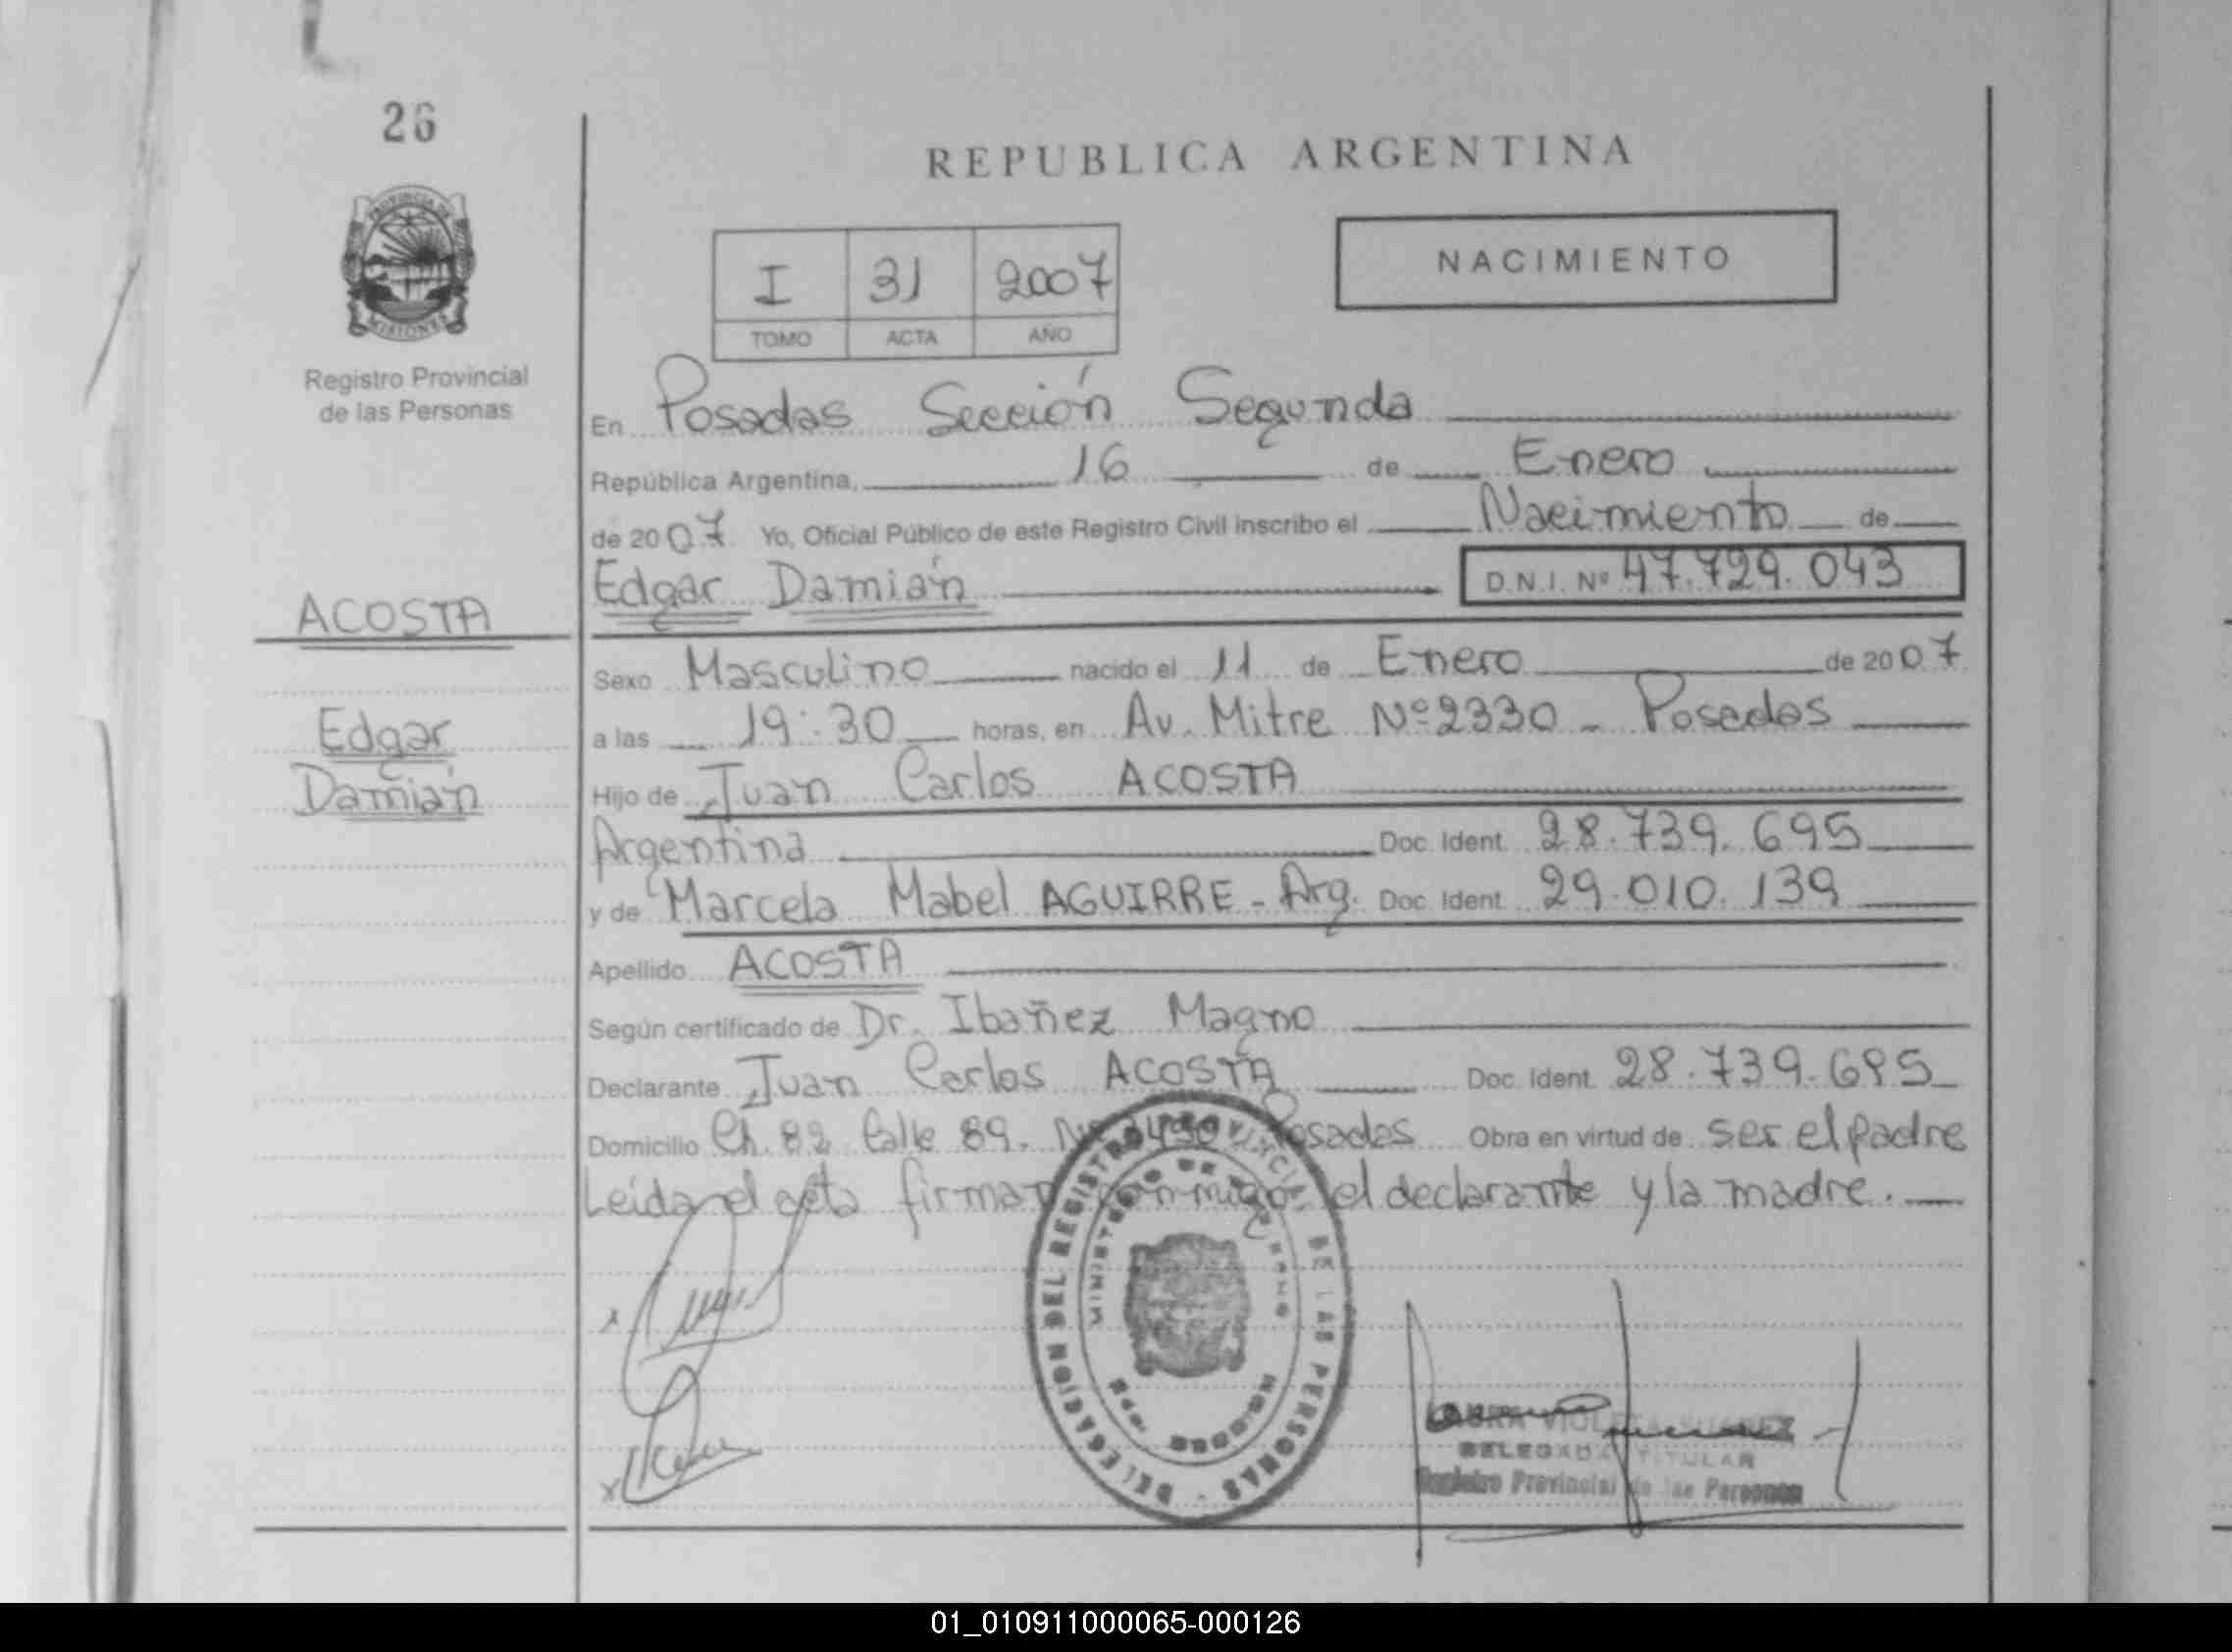 26
REPUBLICA ARGENTINA
PROVINCIA DE
MISIONES
NACIMIENTO
I 31 2007
TOMO ACTA AÑO
Registro Provincial
de las Personas
En Posadas Sección Segunda
República Argentina, 16 de Enero
de 2007 Yo, Oficial Público de este Registro Civil inscribo el Nacimiento de
Edgar Damián D.N.I. Nº 47.729.043
ACOSTA
Sexo Masculino nacido el 11 de Enero de 2007
Edgar
a las 19:30 horas, en Av. Mitre Nº 2330 - Posadas
Damián
Hijo de Juan Carlos ACOSTA
Argentina Doc. Ident. 28.739.695
y de Marcela Mabel AGUIRRE - Arg. Doc. Ident. 29.010.139
Apellido ACOSTA
Según certificado de Dr. Ibañez Magno
Declarante Juan Carlos ACOSTA Doc. Ident. 28.739.695
Domicilio Ch. 82 Calle 89. Posadas Obra en virtud de ser el padre
Leida el acta firman conmigo el declarante y la madre.
DELEGACION DEL REGISTRO PROVINCIAL DE LAS PERSONAS
MINISTERIO DE GOBIERNO
LAURA VIOLETA SUAREZ
DELEGADA TITULAR
Registro Provincial de las Personas
01_010911000065-000126